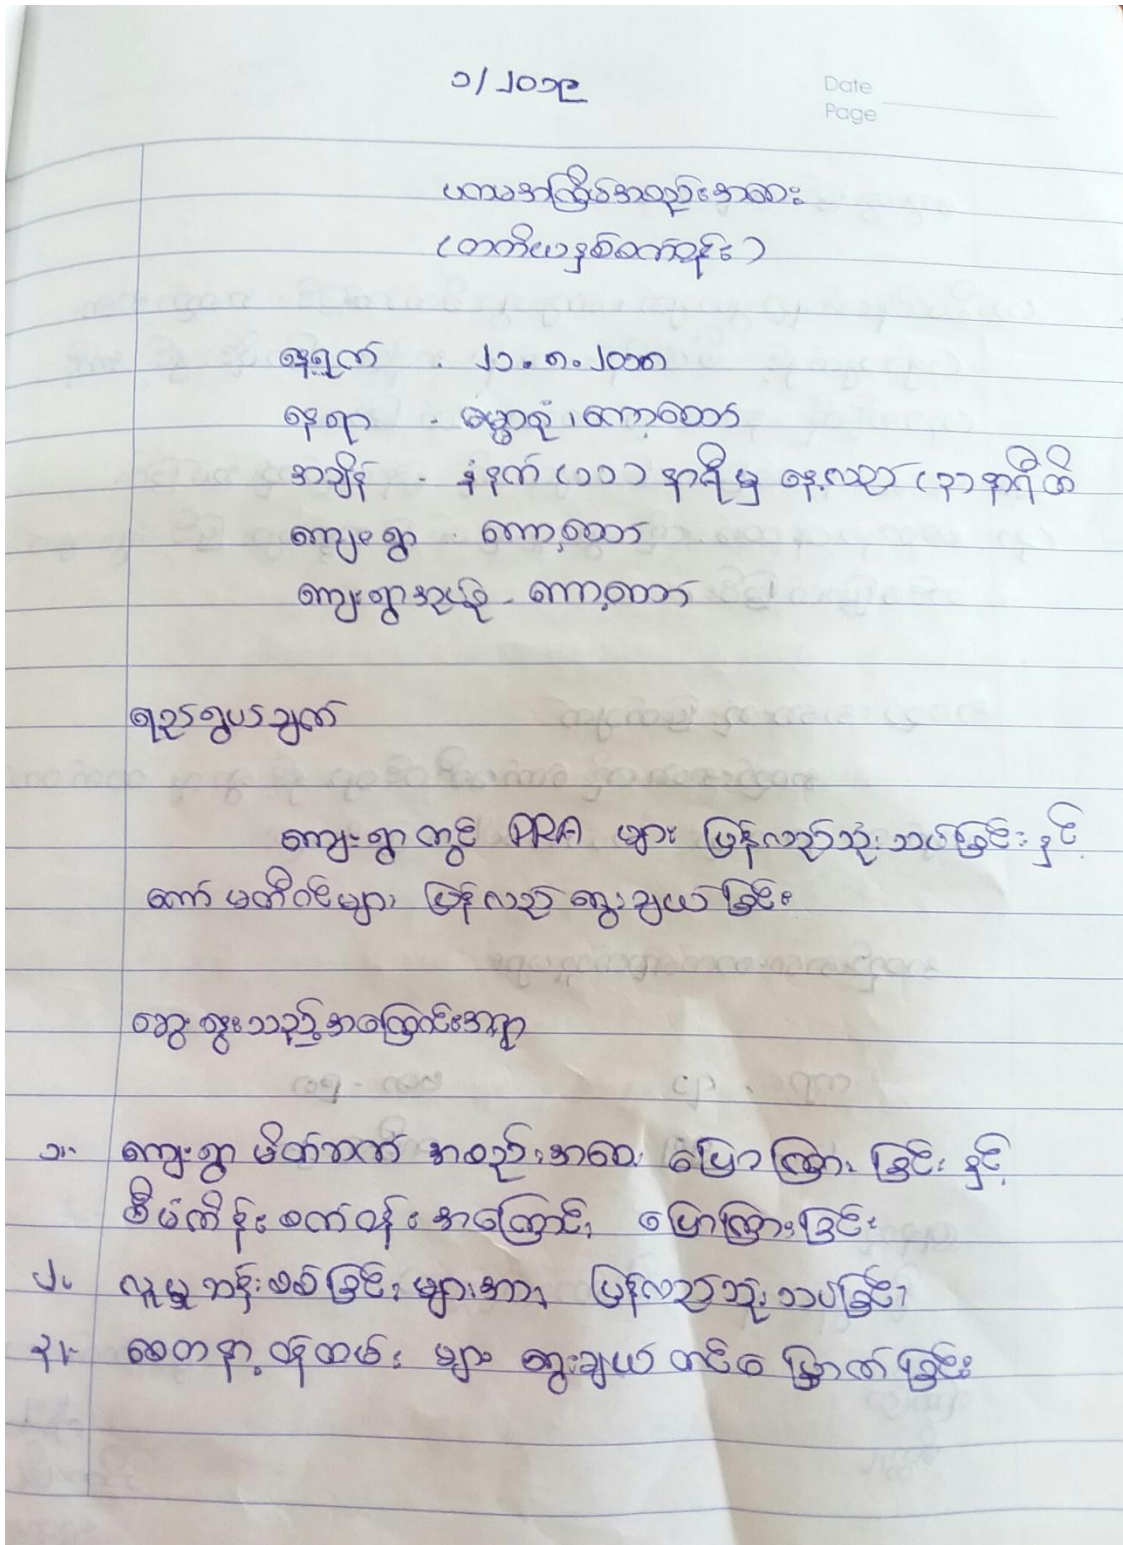 ၁/၂၀၁၉
Date
Page
ပထမအကြိမ်အစည်းအဝေး
(တတိယနှစ်စက်ဝန်း)
နေ့ရက် - ၂၁.၈.၂၀၁၈
နေရာ - ဓမ္မာရုံ၊ ကော့သော်
အချိန် - နံနက် (၁၁) နာရီမှ နေ့လည် (၃) နာရီထိ
ကျေးရွာ - ကော့သော်
ကျေးရွာအုပ်စု - ကော့သော်
ရည်ရွယ်ချက်
ကျေးရွာတွင် PRA များ ပြန်လည်သုံးသပ်ခြင်း နှင့်
ကော်မတီဝင်များ ပြန်လည်ရွေးချယ်ခြင်း
ဆွေးနွေးသည့်အကြောင်းအရာ
၁။ ကျေးရွာမိတ်ဆက် အစည်းအဝေး ပြောကြားခြင်း နှင့်
စီမံကိန်းစက်ဝန်းအကြောင်း ပြောကြားခြင်း
၂။ လူမှုဆန်းစစ်ခြင်းများအား ပြန်လည်သုံးသပ်ခြင်း
၃။ စေတနာ့ဝန်ထမ်းများ ရွေးချယ်တင်မြှောက်ခြင်း